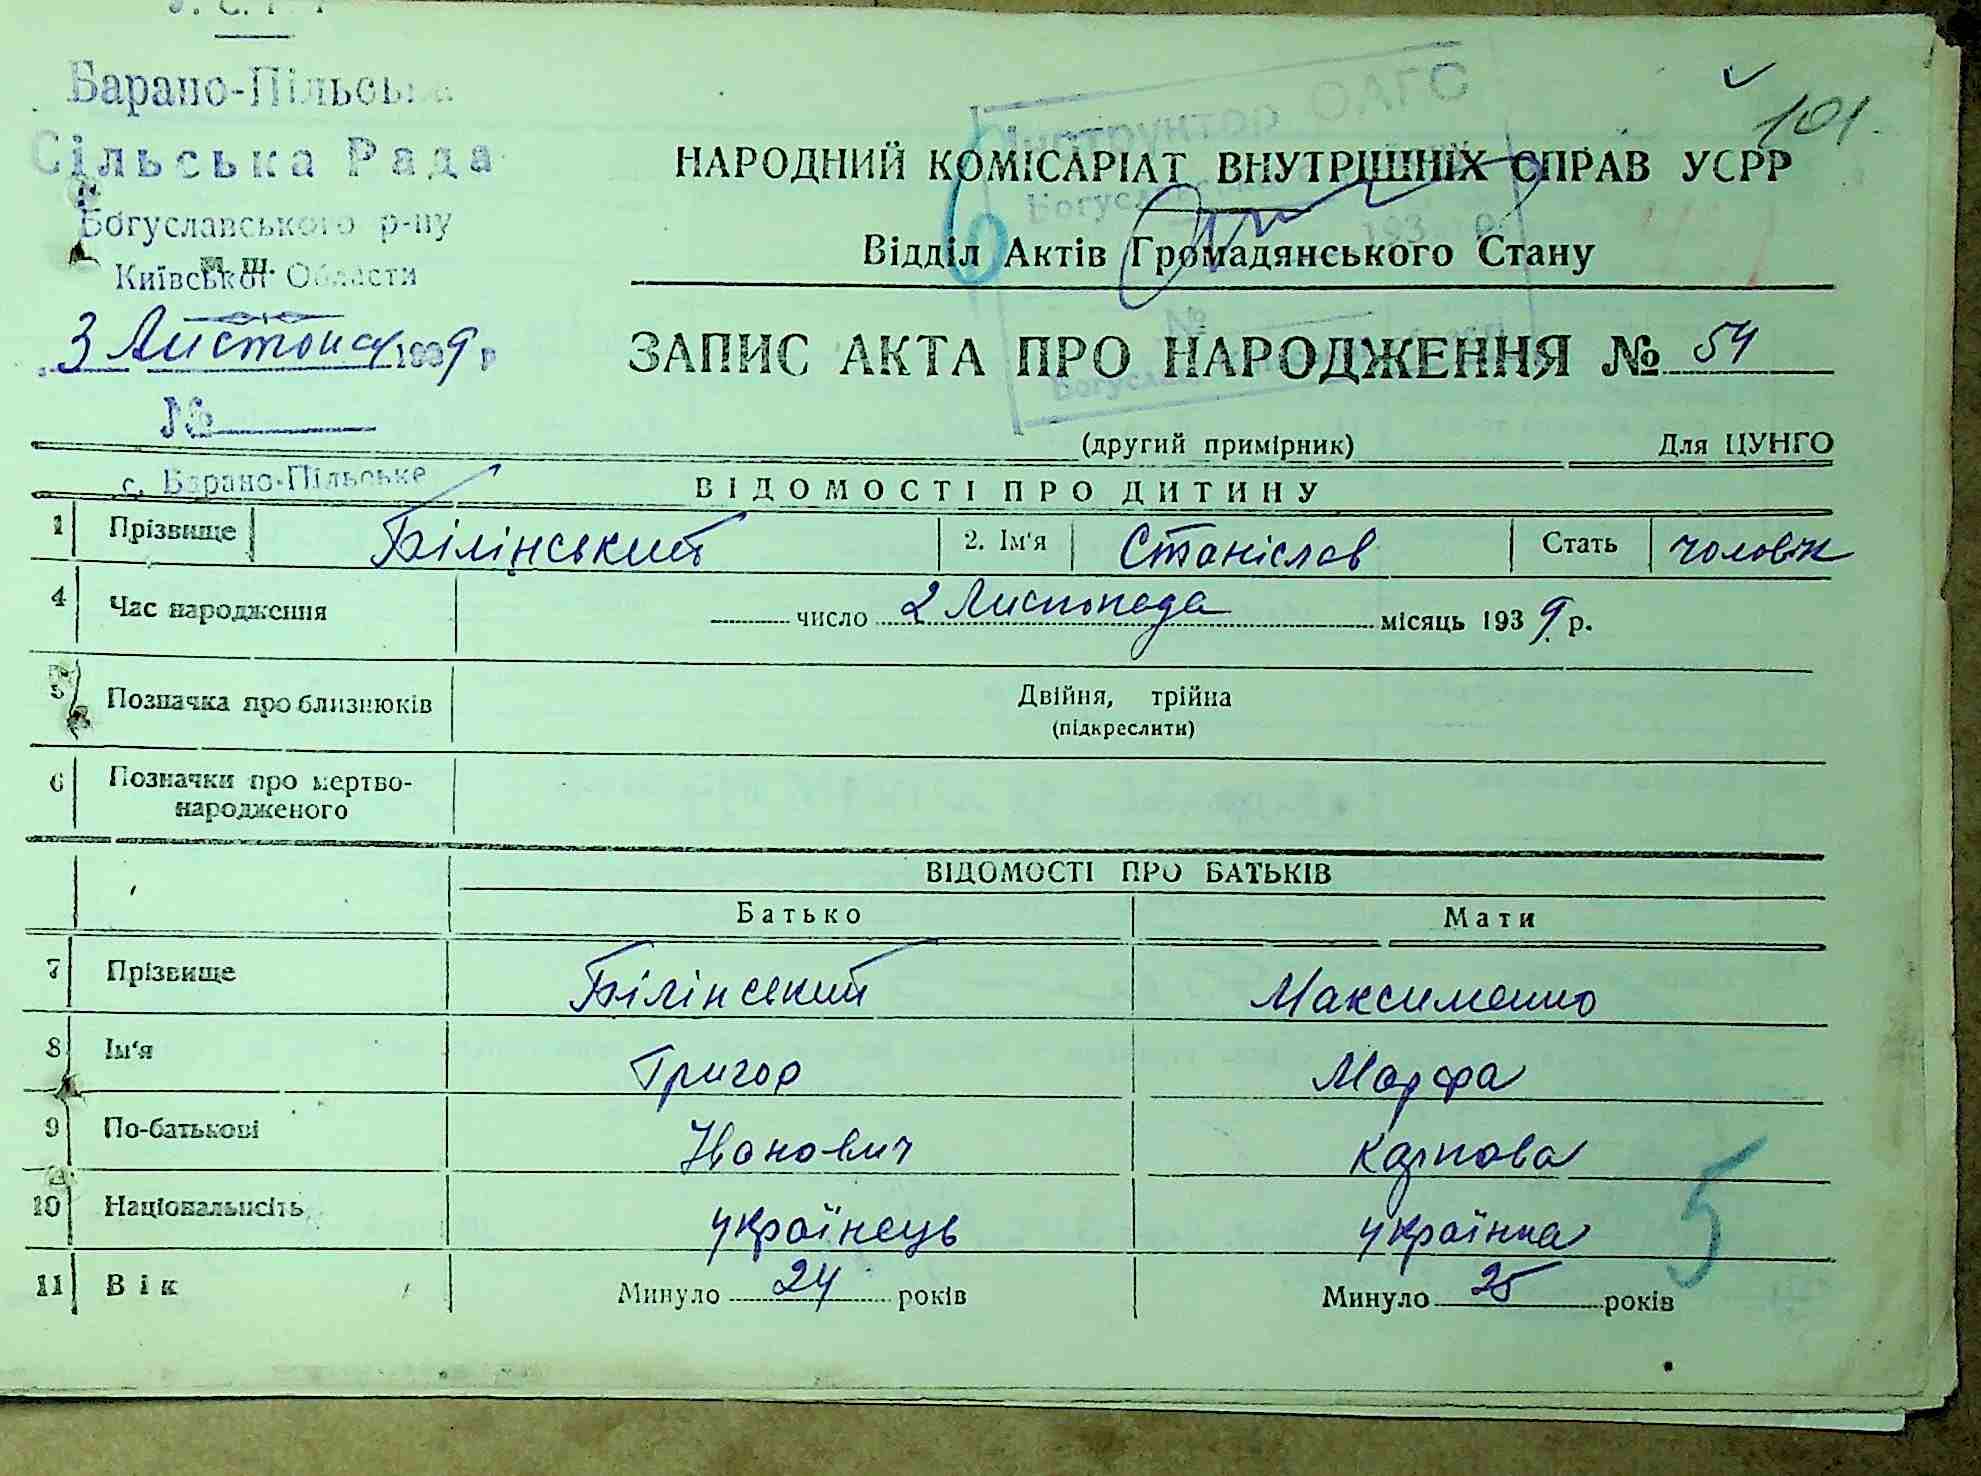 Барано-Пільська
Сільська Рада
Богуславського р-ну
Київської Области
3 Листопад 1939 р
№
с. Барано-Пільське
101.
Інструктор ОАГС
НАРОДНИЙ КОМІСАРІАТ ВНУТРІШНІХ СПРАВ УСРР
6
Відділ Актів Громадянського Стану
ЗАПИС АКТА ПРО НАРОДЖЕННЯ № 54
(другий примірник) Для ЦУНГО
ВІДОМОСТІ ПРО ДИТИНУ
1 Прізвище Білінський 2. Ім'я Станіслав Стать чоловік
4 Час народження число 2 Листопада місяць 1939 р.
5 Позначка про близнюків Двійня, трійна
(підкреслити)
6 Позначки про мертво-
народженого
ВІДОМОСТІ ПРО БАТЬКІВ
Батько Мати
7 Прізвище Білінський Максименко
8 Ім'я Григор Марфа
9 По-батькові Іванович Карпова
10 Національність українець українка
5
11 Вік Минуло 24 років Минуло 25 років